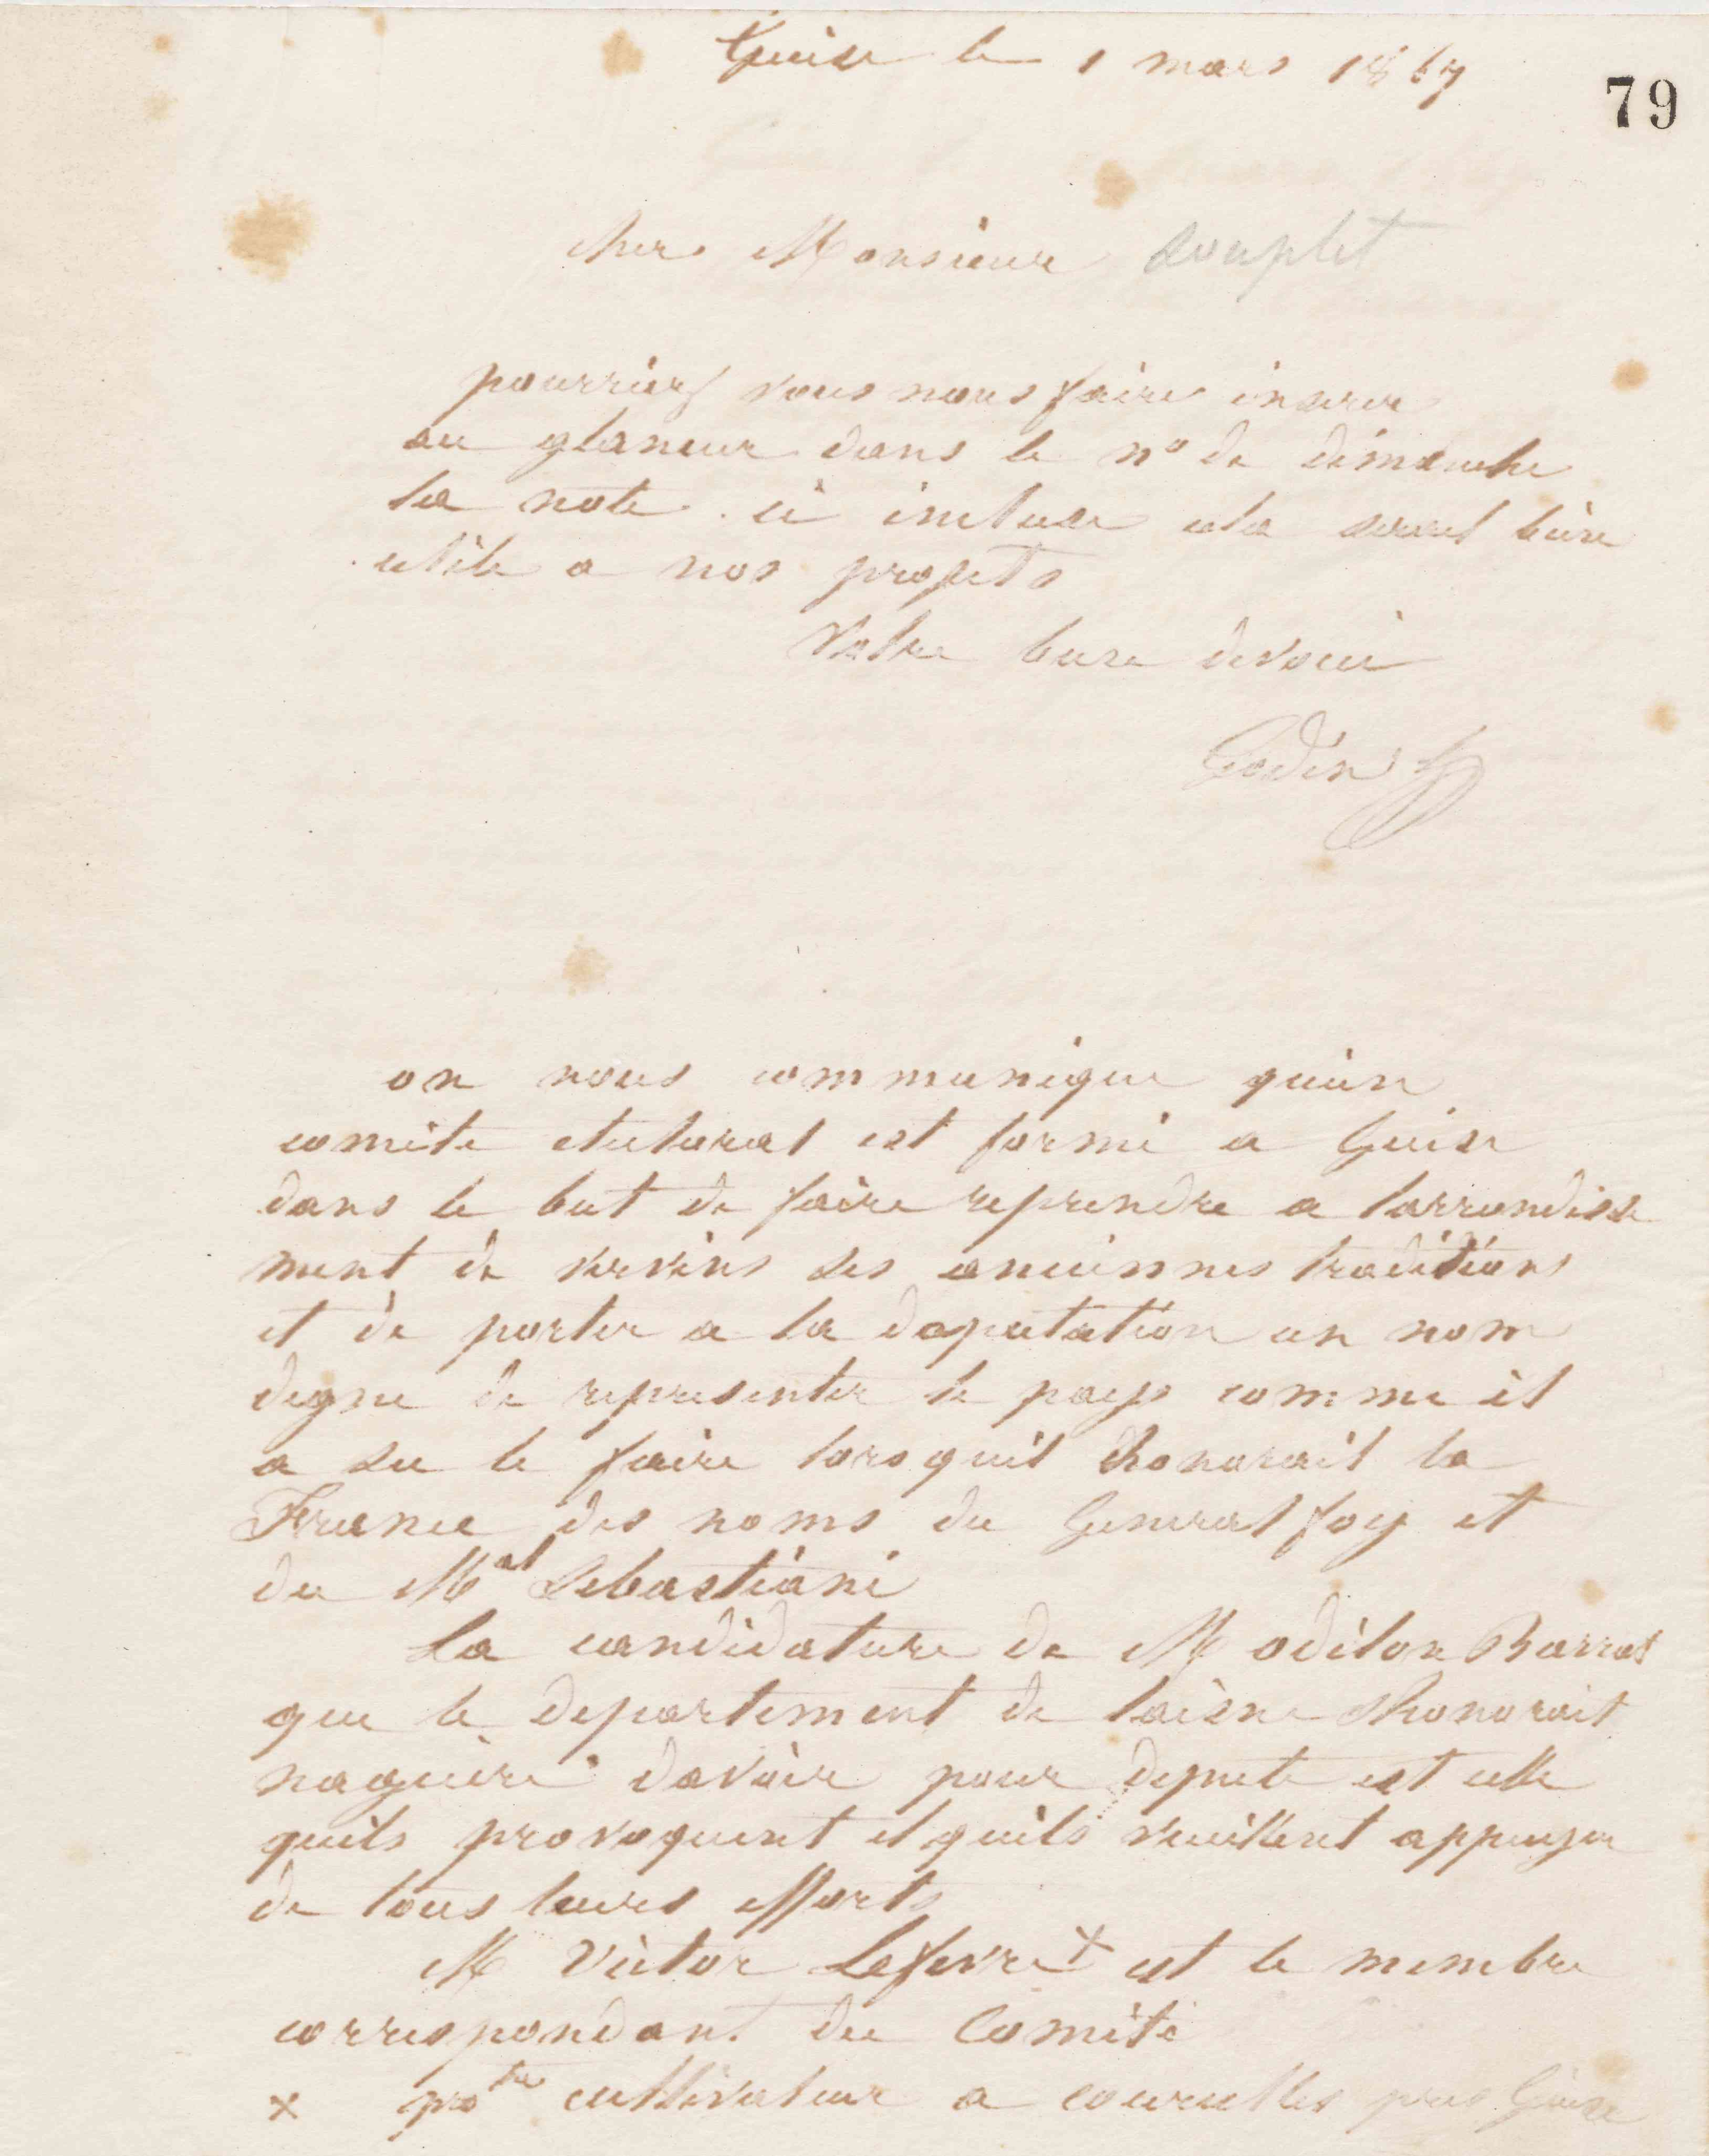 Guise le 1 mars 1867
79
cher Monsieur Souplet
pourriez vous nous faire inserer
au glaneur dans le n° de dimanche
la note ci incluse cela serait bien
utile a nos projets
Votre bien devoué
Godin
on nous communique quun
comite electoral est formé a Guise
dans le but de faire reprendre a larrondisse
ment de vervins ses anciennes traditions
et de porter a la deputation un nom
digne de representer le pays comme il
a su le faire lorsquil honorait la
France des noms du General foy et
du Mal Sebastiani
La candidature de M odilon Barrot
que le departement de laisne shonorait
naguère davoir pour depute est celle
quils provoquent et quils veuillent appuyer
de tous leurs efforts
M Victor Lefevre x est le membre
correspondant du Comité
x pro tre cultivateur a courcelles pres Guise